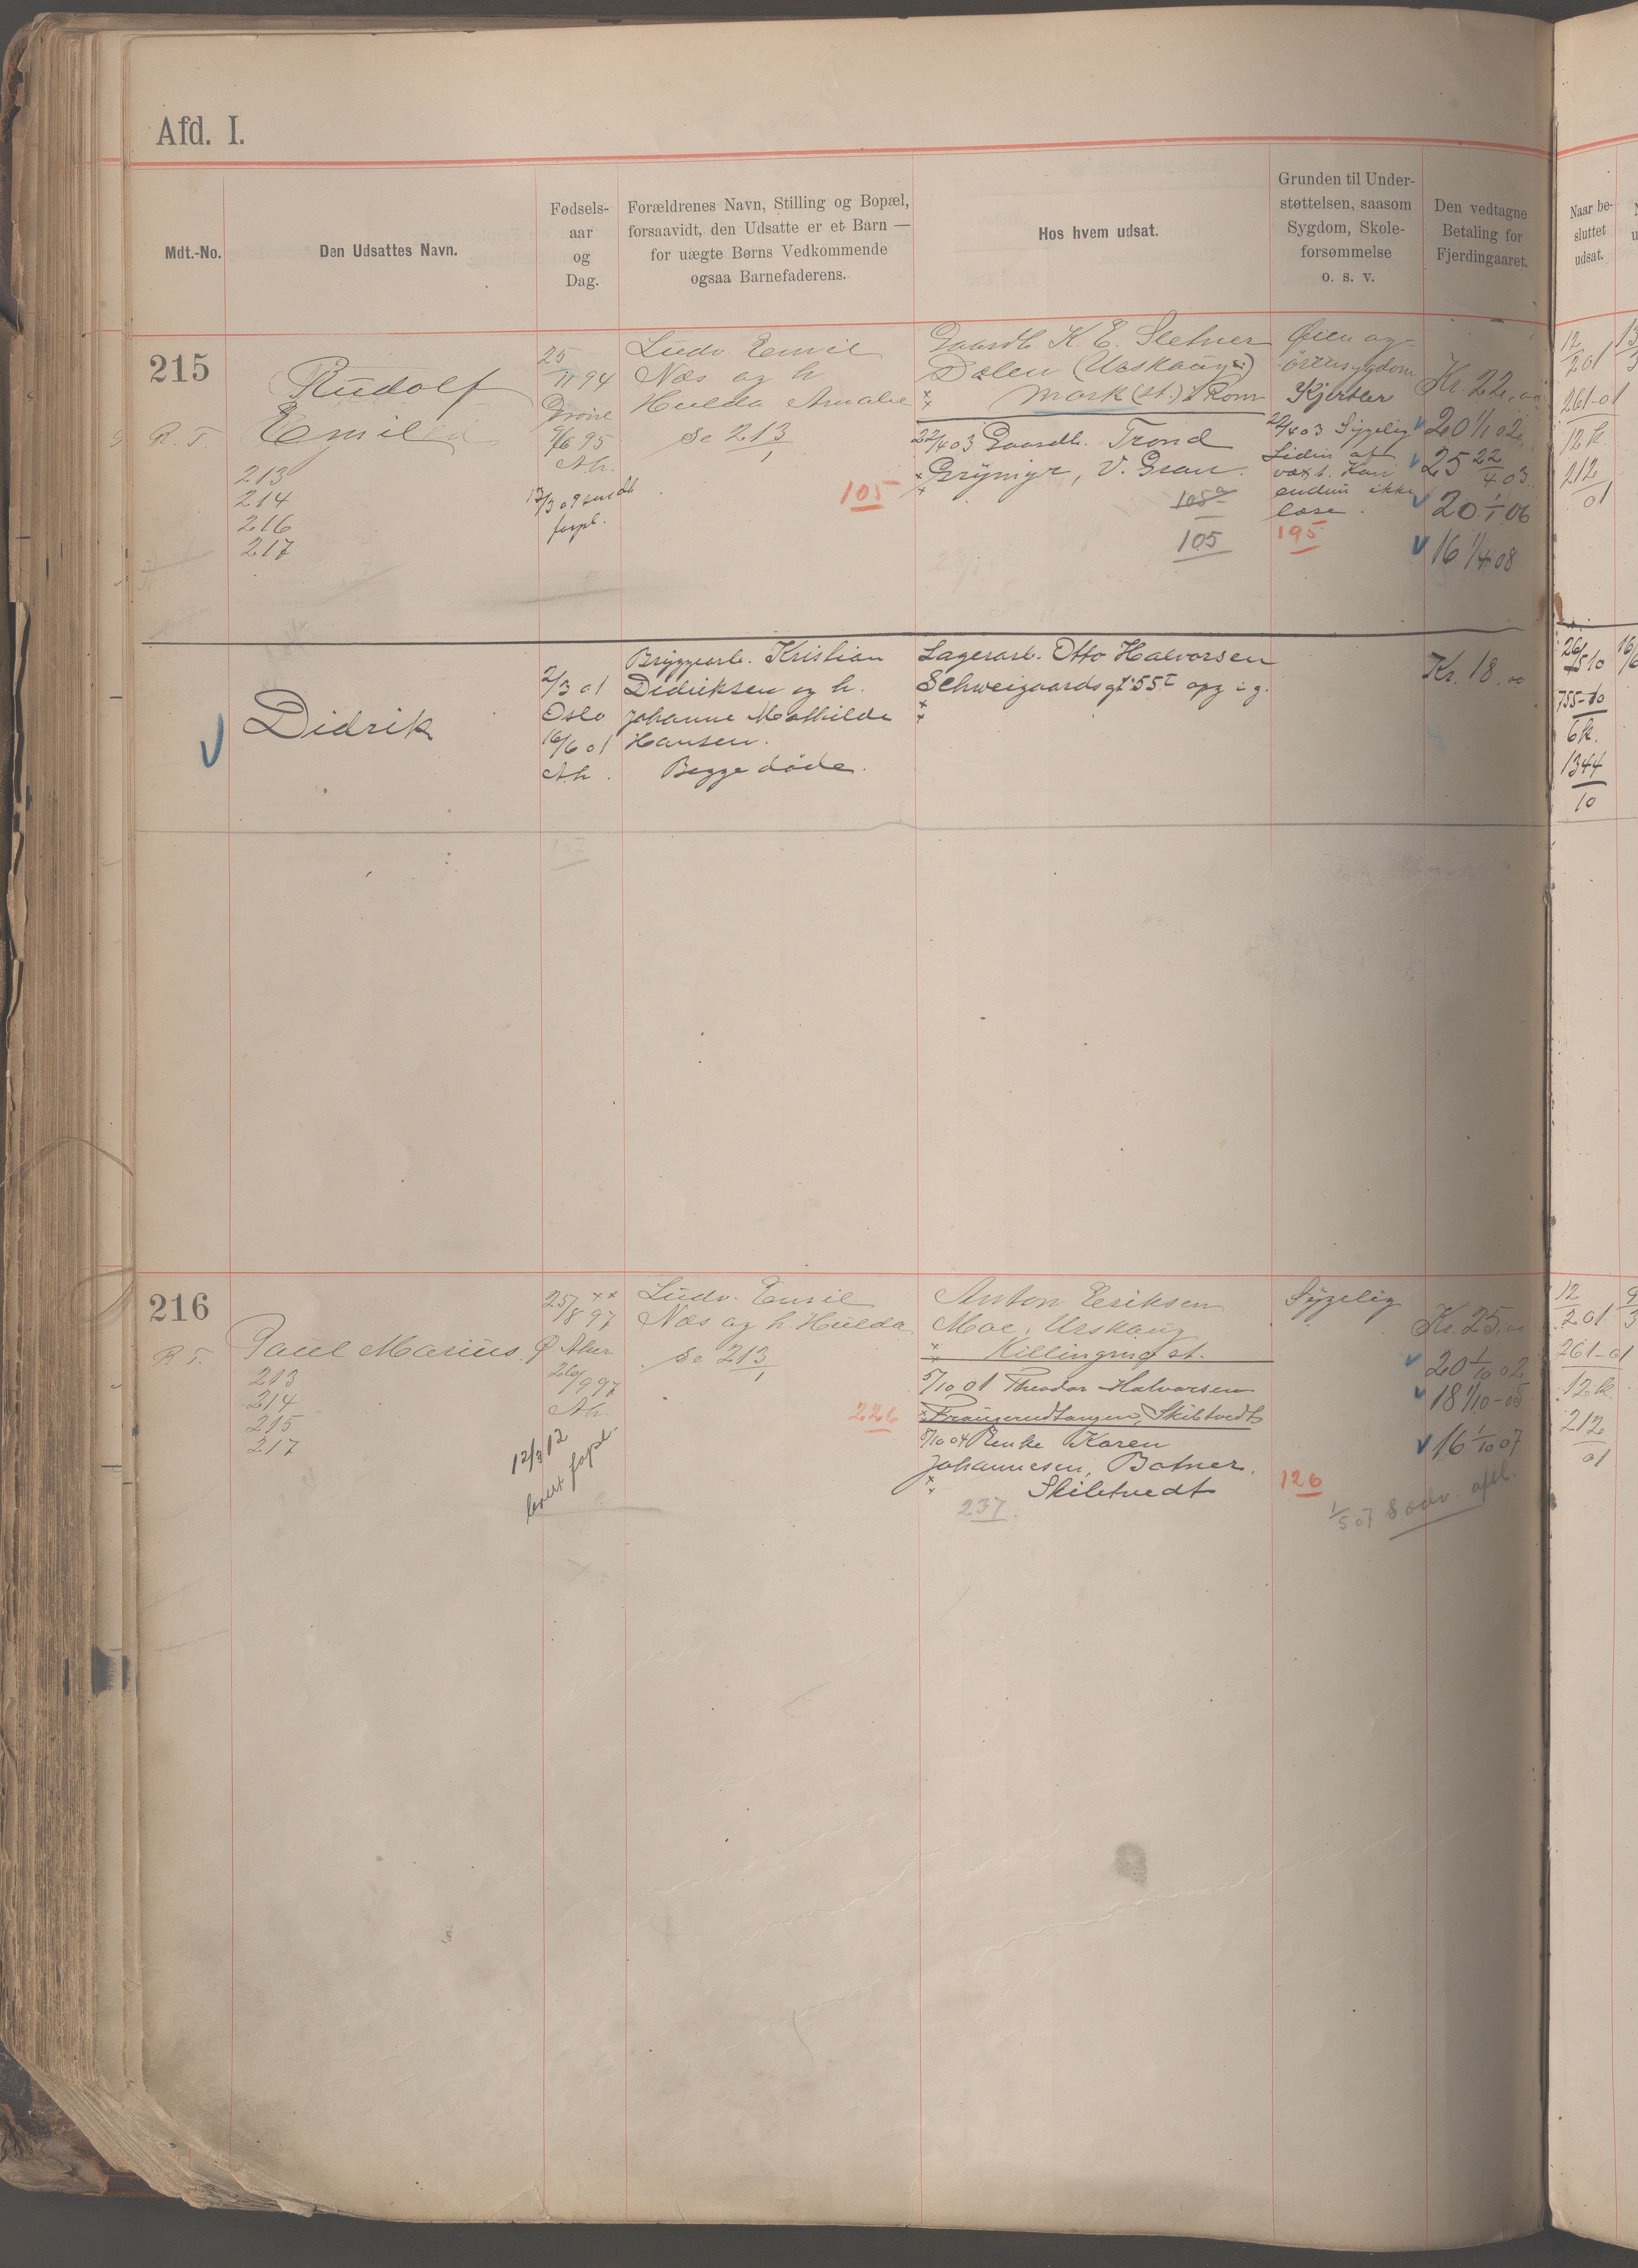 Afd. I.
Mdt.-No.
Den Udsattes Navn.
Fødsels-
aar
og
Dag.
Forældrenes Navn, Stilling og Bopæl,
forsaavidt, den Udsatte er et Barn —
for uægte Børns Vedkommende
ogsaa Barnefaderens.
Hos hvem udsat.
Grunden til Under-
støttelsen, saasom
Sygdom, Skole-
forsømmelse
o. s. v.
Den vedtagne
Betaling for
Fjerdingaaret.
Naar be-
sluttet
udsat.
215
R. T.
Rudolf
Emil
213
214
216
217
25/11 94
9/6 95
Ah.
13/3 09
forpl.
Ludv. Emil
Næs og h.
Hulda Amalie
Se 213
105
Gaardb. K. E. Sletner
Dalen (Urskaug)
Mork (st.)
22/4 03 Gaardb. Trond
Grýmyr, V. Gran.
105
105
Øien og
ørensygdom
Kjertler
22/4 03 Sygelig
Liden af
væxt. Kan
endnu ikke
læse.
195
Kr. 22,00
20 1/1 02
25 22/4 03
20 1/1 06
16 1/4 08
12/2 01
261-01
12 k
212/01
Didrik
2/3 01
Oslo
16/6 01
Ah.
Bryggearb. Kristian
Didriksen og h.
Johanne Mathilde
Hansen.
Begge døde.
Lagerarb. Otto Halvorsen
Schweigaardsgt. 55 opg i g.
Kr. 18,00
26/5 10
755-10
6 k.
1344/10
216
R T.
Paul Marius.
213
214
215
217
25/8 97
Ø Aker
26/9 97
Ah.
12/3 12
Ludv. Emil
Næs og h. Hulda
Se 213
226
Anton Eriksen
Moe, Urskaug
Killingmo st.
5/10 01 Theodor Halvorsen
Skibtvedt
5/10 04 Enke Karen
Johannesen, Botner,
Skibtvedt
237.
Sygelig
126
Kr. 25,00
20 1/10 02
18 1/10-05
16 1/10 07
1/5 07
12/2 01
261-01
12 k
212/01